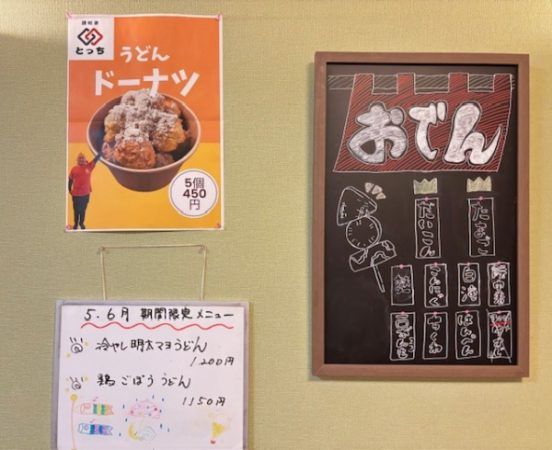 讃岐家
とっち
うどん
ドーナツ
5個
450
円
5.6月 期間限定メニュー
冷やし明太マヨうどん
1200円
鶏ごぼううどん
1150円
おでん
たまご
だいこん
白滝
こんにゃく
はんぺん
ちくわ